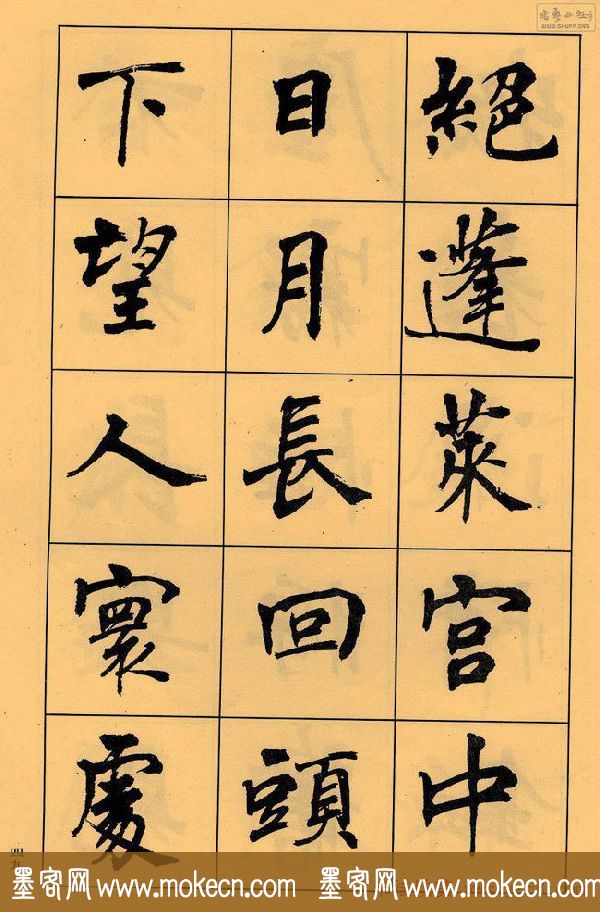 絕蓬萊宮中
日月長回頭
下望人寰處
四九
墨客网 www.mokecn.com 墨客网 www.mokecn.com
WWW.SHUFF.ORG